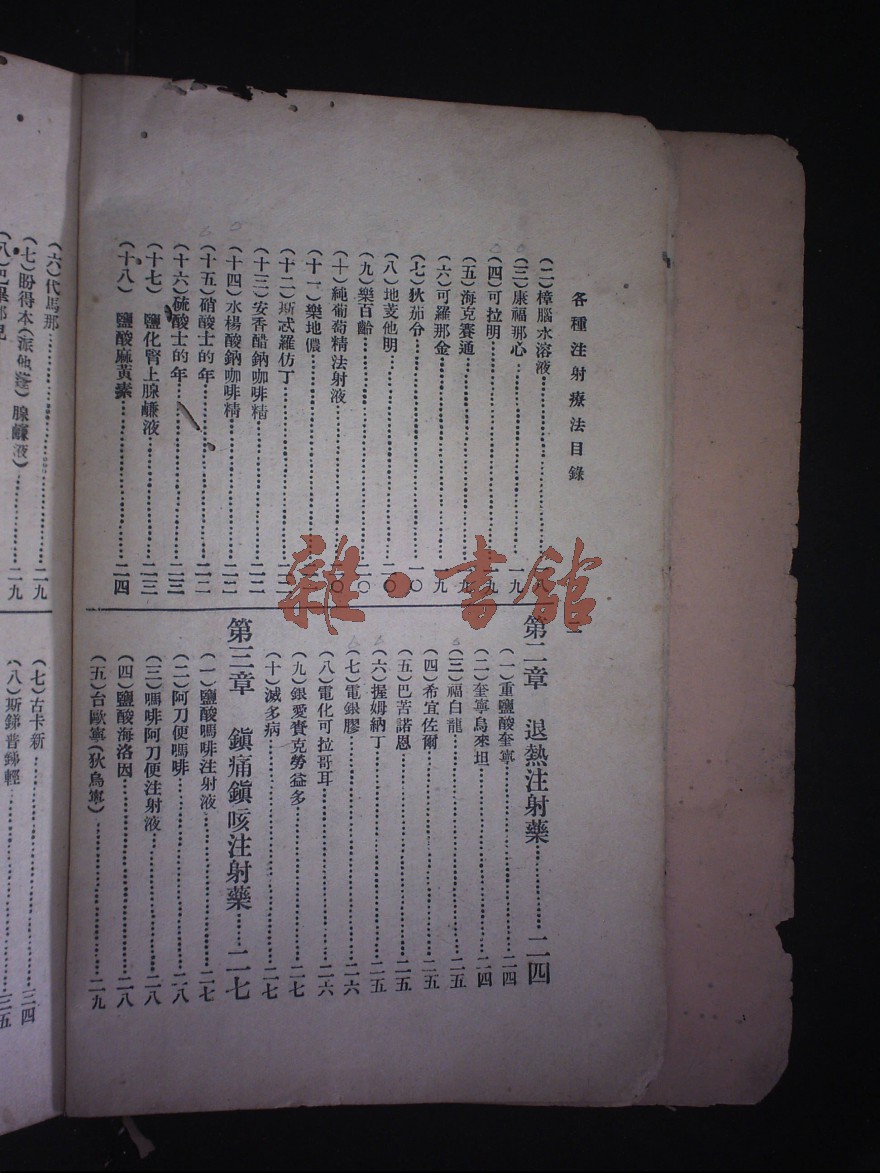 各種注射療法目錄
二
(二)樟腦水溶液……一八
(三)康福那心……一九
(四)可拉明……一九
(五)海克賽通……一九
(六)可羅那金……一九
(七)狄茄令……一〇
(八)地芰他明……二〇
(九)樂百齡……二〇
(十)純葡萄精法射液……二〇
(十一)樂地儂……
(十二)斯忒羅仿丁……
(十三)安香醋鈉咖啡精……二二
(十四)水楊酸鈉咖啡精……二二
(十五)硝酸士的年……二二
(十六)硫酸士的年……二三
(十七)鹽化腎上腺鹻液……二三
(十八)鹽酸麻黃素……二四
第二章 退熱注射藥……二四
(一)重鹽酸奎寧……二四
(二)奎寧烏來坦……二四
(三)福白龍……二五
(四)希宜佐爾……二五
(五)巴苦諾恩……二五
(六)握姆納丁……二五
(七)電銀膠……二六
(八)電化可拉哥耳……二六
(九)銀愛賚克勞益多……二七
(十)滅多病……二七
第三章 鎮痛鎮咳注射藥……二七
(一)鹽酸嗎啡注射液……二七
(二)阿刀便嗎啡……二八
(三)嗎啡阿刀便注射液……二八
(四)鹽酸海洛因……二八
(五)台歐寧(狄烏寧)……二九
(六)代馬那……二九
(七)盼得本( 腺鹻液)……二九
(八)巴
(七)古卡新……三四
(八)斯銻普銻輕……三五
雜·書館